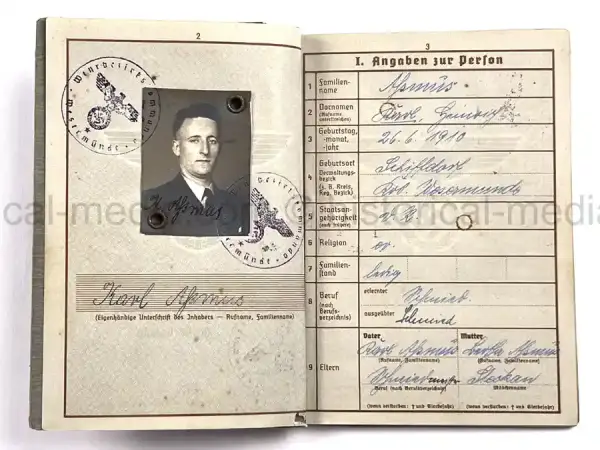 2
Wehrbezirkskommando
Wesermünde
K. Asmus
Karl Asmus
(Eigenhändige Unterschrift des Inhabers — Rufname, Familienname)
3
I. Angaben zur Person
1 Familien-
name
Asmus
2 Vornamen
(Rufname
unterstreichen)
Karl, Heinrich
3 Geburtstag,
-monat,
-jahr
26.6.1910
4 Geburtsort
Verwaltungs-
bezirk
(z. B. Kreis,
Reg. Bezirk)
Schiffdorf
Wesermünde
5 Staatsan-
gehörigkeit
(auch frühere)
6 Religion
ev.
7 Familien-
stand
ledig
8 Beruf
(nach
Berufs-
verzeichnis)
erlernter
Schmied
ausgeübter
Schmied
9 Eltern
Vater
Karl Asmus
(Rufname, Familienname)
Schmiedemstr
Beruf (nach Berufsverzeichnis)
(wenn verstorben: † und Sterbejahr)
Mutter
Asmus
(Rufname, Familienname)
Mädchenname
(wenn verstorben: † und Sterbejahr)
cal-media.com © historical-media